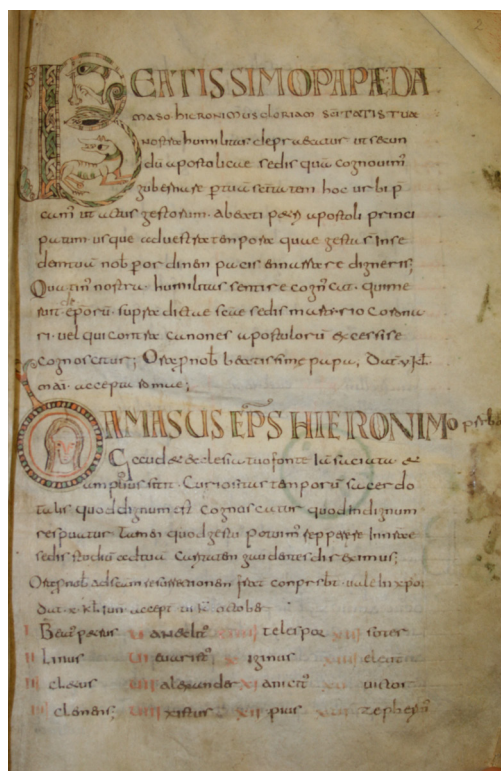 2
BEATISSIMO PAPAE DA
maso hieronimus gloriam scītatis tuae
nostra humilitas deprecatur ut secun
dū apostolicae sedis quā cognouim̄
gubernare per tuā scītatem hoc urbi p
camur ut actus gestorum. a beati petri apostoli princi
patum usque ad uestra tempora quae gesta s in se
de tua nobis per ordinem pacis enarrare digneris;
Quatin nostra humilitas sentire cogn qui me
ruit eporū supra dictae sedis martyrio corona
ri. uel qui contra canones apostolorū excessisse
cognoscatur; Ora pro nob beatissime papa, Dat
mai. accepta romae;
DAMASUS EPS HIERONIMO
Gaudet ecclesia tuo fonte iā saciata et
amplius sitit curiositas temporū sacerdo
talis quod dignum est cognoscatur quod indignum
respuatur Tamen quod gesta potuim̄ repperire in nostrae
sedis studiū ad tuā caritatem gaudentes direximus;
Ora pro nob ad scam resurrectionem frater uale in xpo
Dat x kl iun accept octobr
I Beatus petrus VI anacletus telespor XIII soter
II Linus VII euaristus X iginus XIIII eleut
III cletus VIII alexander XI anicet XV uictor
IIII clemens; VIIII xistus XII pius XVI zepherin